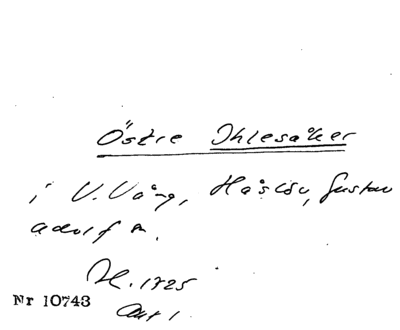 Östre Ihlesåker
i V. Vång, Håslöv, Gustav
Adolf m.
H. 1725
Nr 10743
Akt 1.